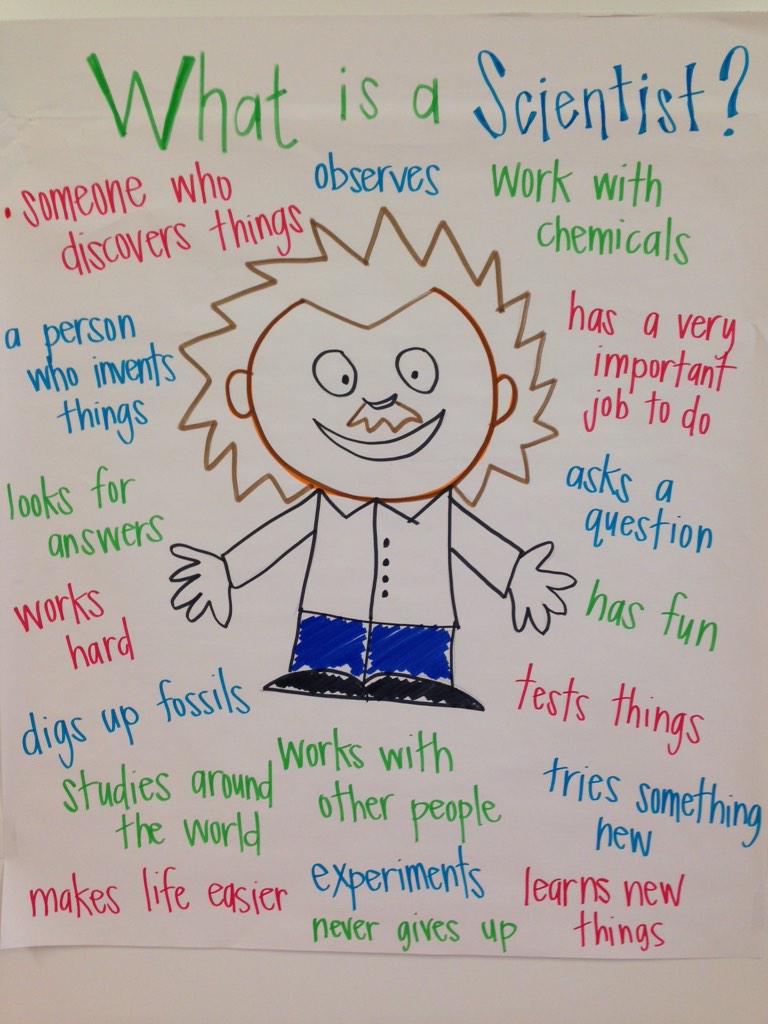 What is a Scientist?
• someone who
discovers things
observes
work with
chemicals
a person
who invents
things
has a very
important
job to do
looks for
answers
asks a
question
works
hard
has fun
digs up fossils
tests things
studies around
the world
works with
other people
tries something
new
makes life easier
experiments
never gives up
learns new
things